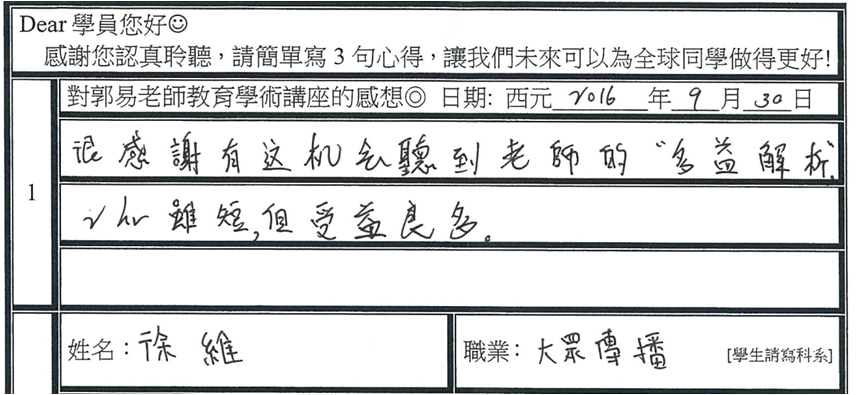 Dear 學員您好☺
感謝您認真聆聽，請簡單寫 3 句心得，讓我們未來可以為全球同學做得更好!
對郭易老師教育學術講座的感想◎ 日期: 西元 2016 年 9 月 30 日
1
很感謝有这机会聽到老師的"多益解析.
2 hr 雖短,但受益良多。
姓名：徐維
職業： 大眾傳播 [學生請寫科系]